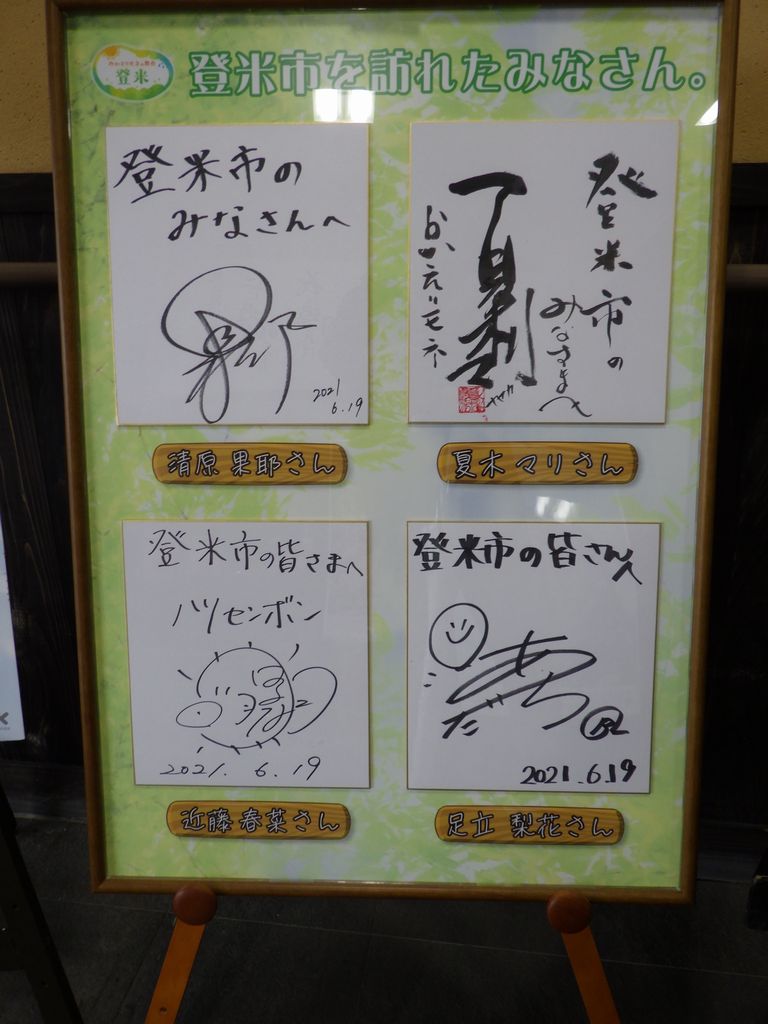 登米
登米市を訪れたみなさん。
登米市の
みなさんへ
2021
6.19
清原 果耶さん
登米市の
みなさまへ
夏木マリ
おかえりモネ
夏木 マリさん
登米市の皆さまへ
ハリセンボン
はるな
2021.6.19
近藤 春菜さん
登米市の皆さんへ
あだち
2021.6.19
足立 梨花さん